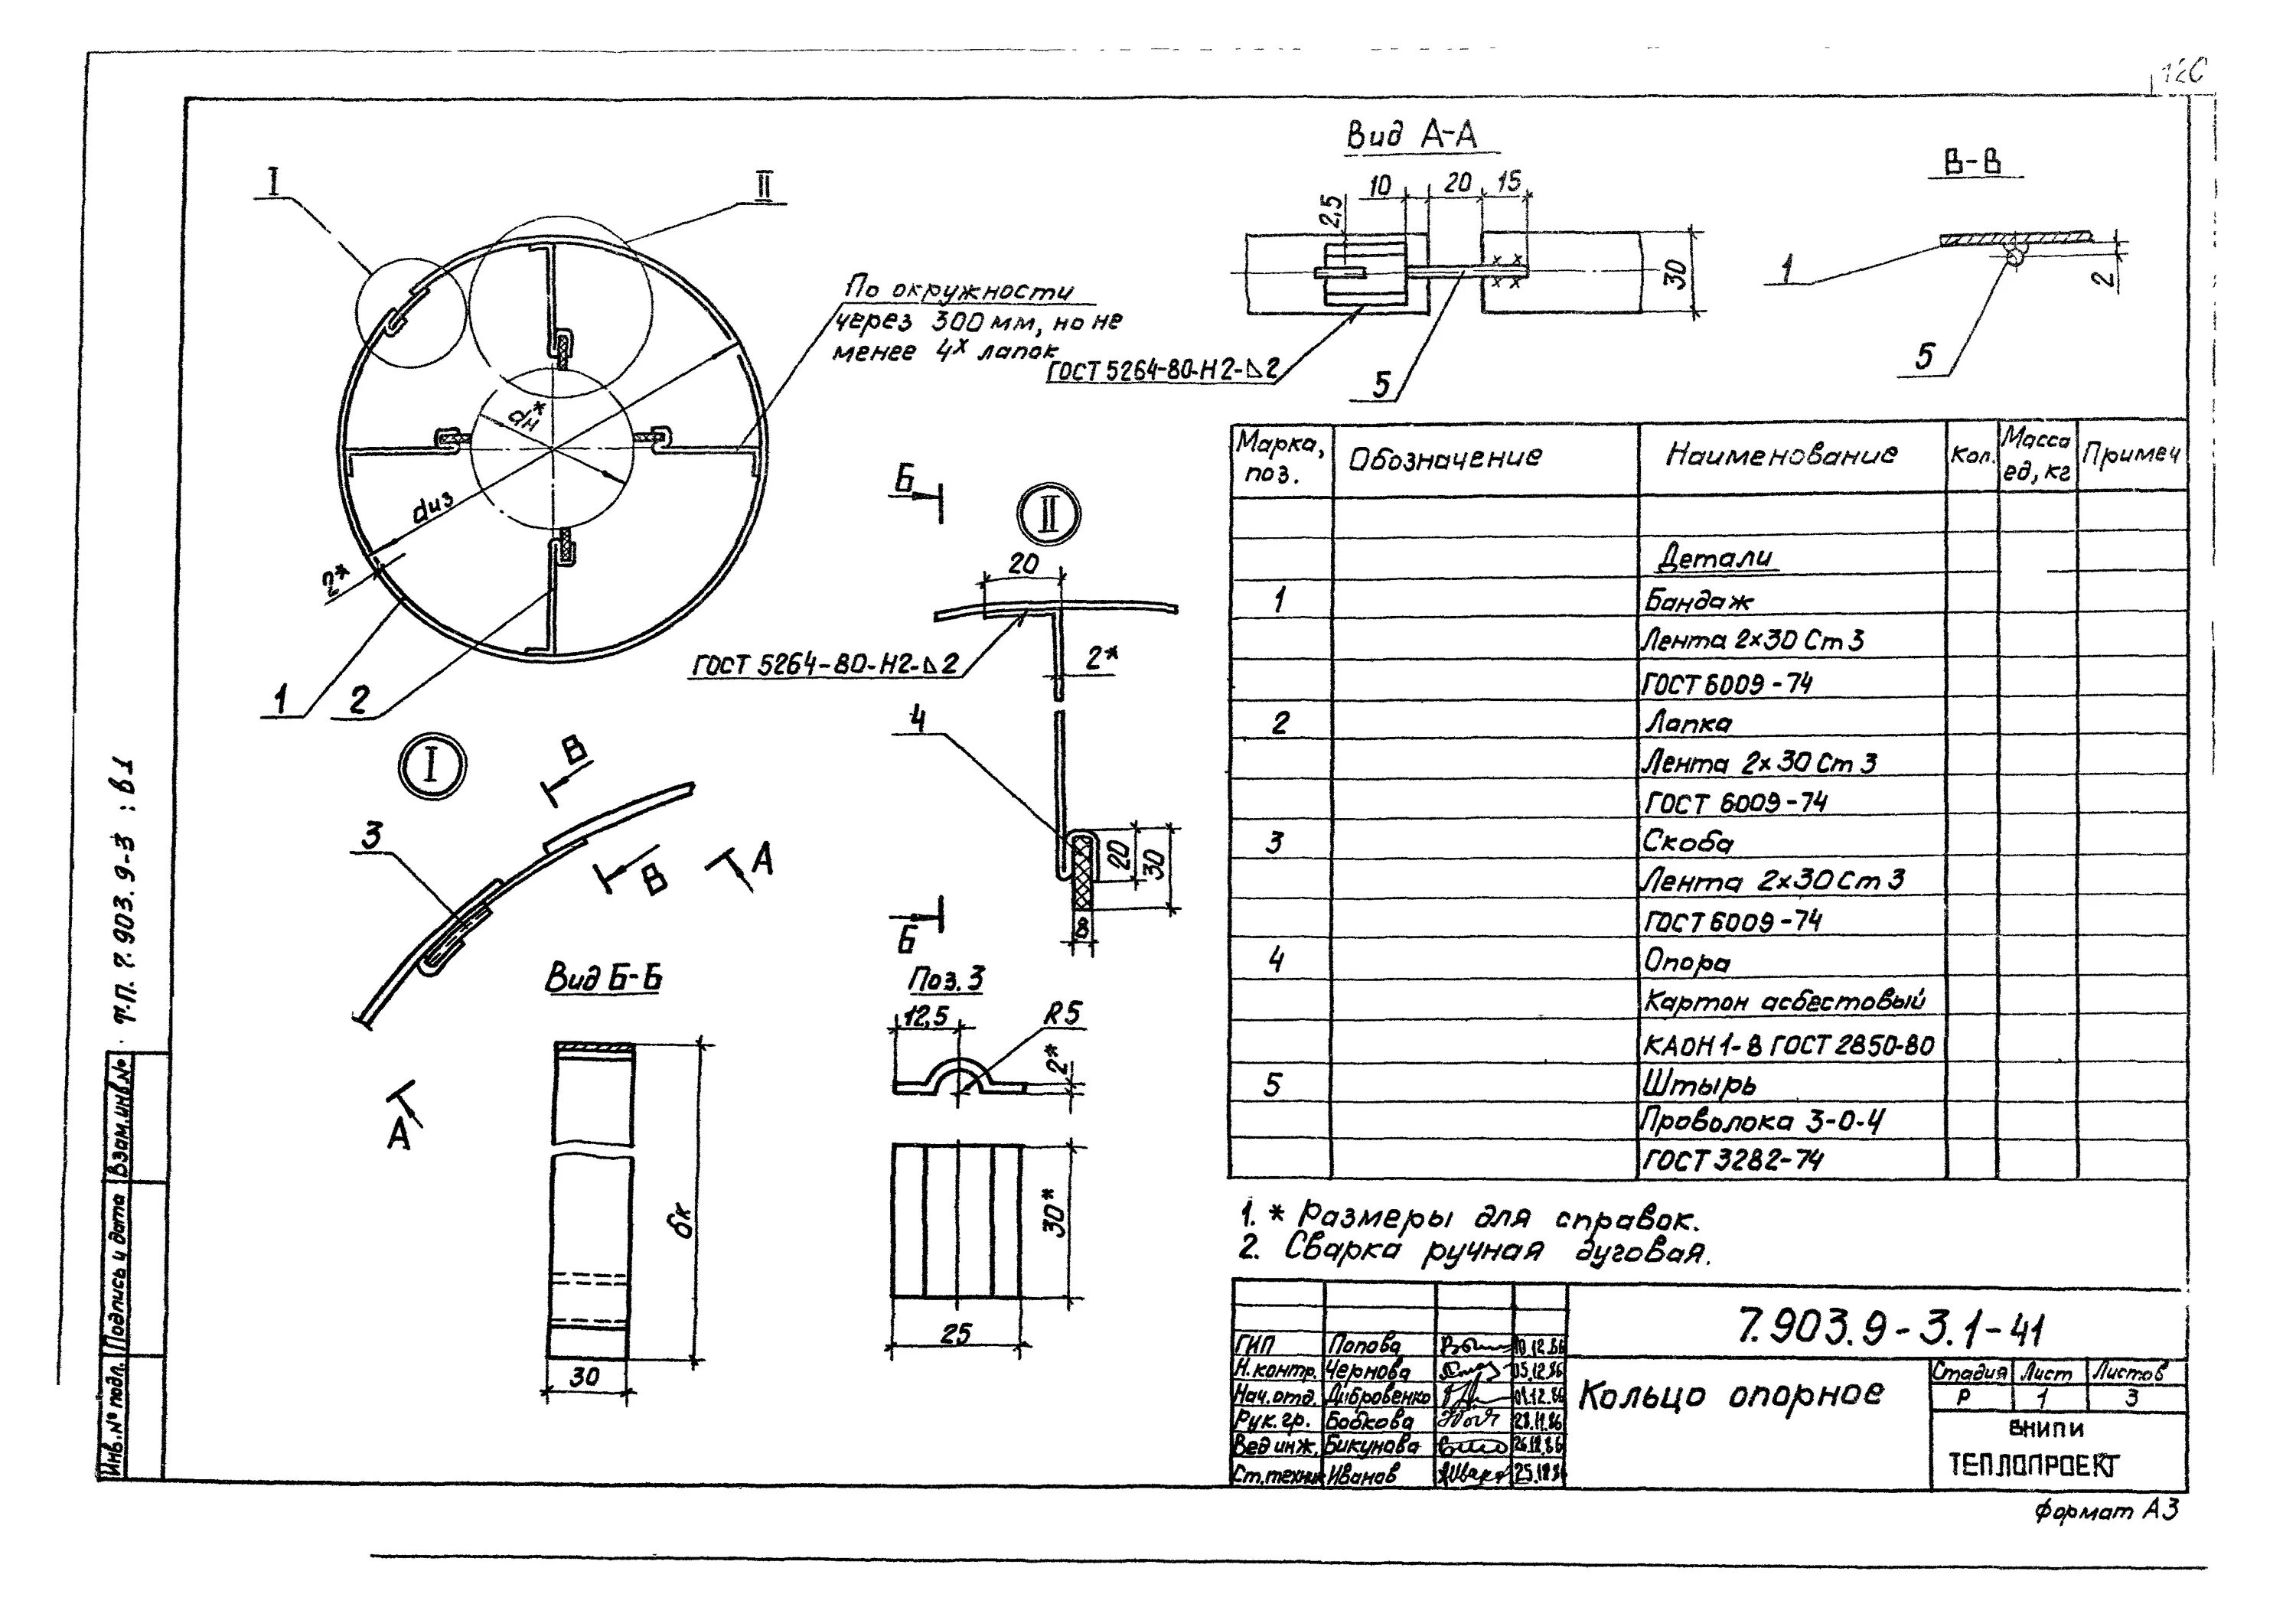 120
I
II
По окружности
через 300 мм, но не
менее 4х лапок
dн*
dиз
2*
1
2
Вид А-А
10
20
15
2,5
30
ГОСТ 5264-80-Н2-⊿2
5
В-В
1
2
5
Б
II
20
ГОСТ 5264-80-Н2-⊿2
2*
4
20
30
8
Б
I
В
3
В
А
А
Вид Б-Б
бк
30
Поз. 3
12,5
R5
2*
30*
25
Марка, поз.
Обозначение
Наименование
Кол.
Масса ед, кг
Примеч
Детали
1 Бандаж
Лента 2х30 Ст 3
ГОСТ 6009-74
2 Лапка
Лента 2х30 Ст 3
ГОСТ 6009-74
3 Скоба
Лента 2х30 Ст 3
ГОСТ 6009-74
4 Опора
Картон асбестовый
КАОН 1-8 ГОСТ 2850-80
5 Штырь
Проволока 3-0-4
ГОСТ 3282-74
1. * Размеры для справок.
2. Сварка ручная дуговая.
7.903.9-3.1-41
ГИП Попова 10.12.86
Н.контр. Чернова 05.12.86
Нач.отд. Дибровенко 01.12.86
Рук. гр. Бобкова 28.11.86
Вед инж. Бикунова
Ст.техник Иванов
Кольцо опорное
Стадия Лист Листов
Р 1 3
ВНИПИ
ТЕПЛОПРОЕКТ
Формат А3
т.п. 7.903.9-3 : в1
Взам.инв.№
Подпись и дата
Инв.№ подл.